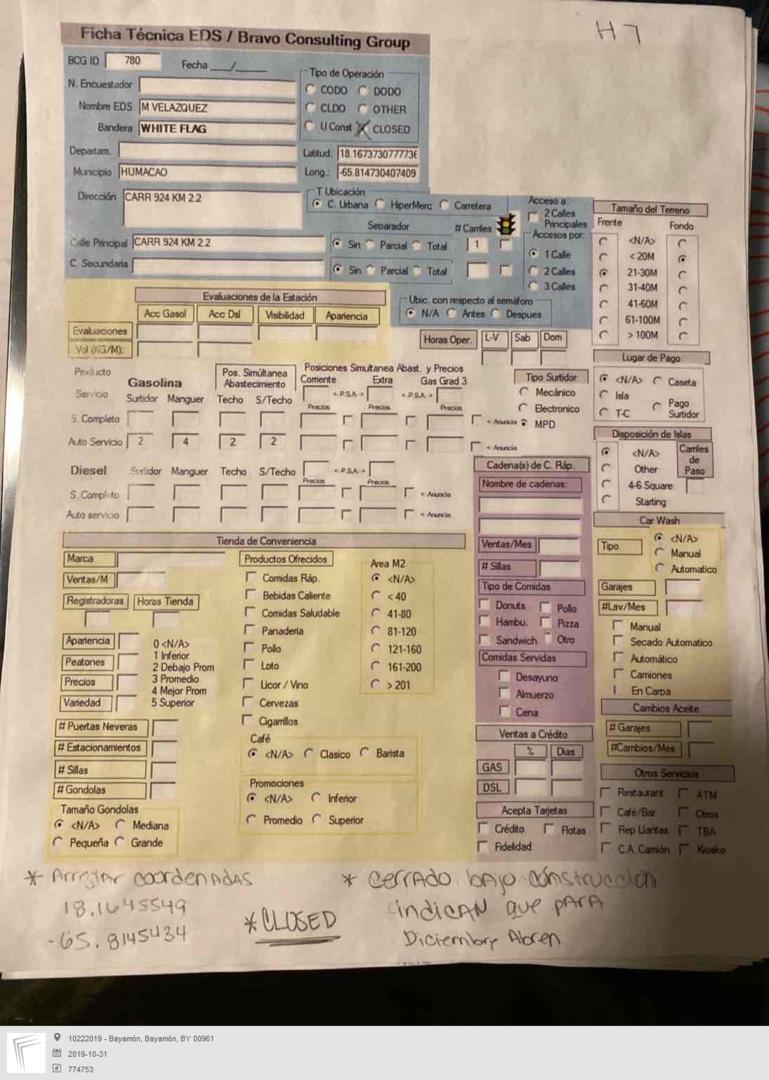 H7
Ficha Técnica EDS / Bravo Consulting Group
BCG ID 780 Fecha ___/______
N. Encuestador
Nombre EDS M VELAZQUEZ
Bandera WHITE FLAG
Tipo de Operación
CODO DODO
CLDO OTHER
U Const CLOSED
Departam.
Municipio HUMACAO
Latitud: 18.167373077773
Long.: -65.814730407409
Dirección CARR 924 KM 2.2
T Ubicación
C. Urbana HiperMerc Carretera
Calle Principal CARR 924 KM 2.2
C. Secundaria
Separador # Carriles
Sin Parcial Total 1
Sin Parcial Total
Acceso a:
2 Calles Principales
Accesos por:
1 Calle
2 Calles
3 Calles
Tamaño del Terreno
Frente Fondo
<N/A>
< 20M
21-30M
31-40M
41-60M
61-100M
> 100M
Evaluaciones de la Estación
Acc Gasol Acc Dsl Visibilidad Apariencia
Evaluaciones
Vol (KG/M):
Ubic. con respecto al semáforo
N/A Antes Despues
Horas Oper. L-V Sab Dom
Lugar de Pago
<N/A> Caseta
Isla Pago Surtidor
T-C
Producto
Servicio
Gasolina
Surtidor Manguer
Pos. Simultánea Abastecimiento
Techo S/Techo
Posiciones Simultanea Abast. y Precios
Corriente Extra Gas Grad 3
< P.S.A. > < P.S.A. >
Precios Precios Precios
S. Completo < Anuncia
Auto Servicio 2 4 2 2 < Anuncia
Tipo Surtidor
Mecánico
Electronico
MPD
Disposición de Islas
<N/A>
Other
4-6 Square
Starting
Carriles de Paso
Diesel Surtidor Manguer Techo S/Techo < P.S.A. >
Precios Precios
S. Completo < Anuncia
Auto servicio < Anuncia
Cadena(s) de C. Ráp.
Nombre de cadenas:
Ventas/Mes
# Sillas
Tipo de Comidas
Donuts Pollo
Hambu. Pizza
Sandwich Otro
Comidas Servidas
Desayuno
Almuerzo
Cena
Car Wash
Tipo <N/A>
Manual
Automatico
Garajes
#Lav/Mes
Manual
Secado Automatico
Automático
Camiones
En Carpa
Cambios Aceite
# Garajes
#Cambios/Mes
Tienda de Conveniencia
Marca
Ventas/M
Registradoras Horas Tienda
Apariencia
Peatones
Precios
Variedad
0 <N/A>
1 Inferior
2 Debajo Prom
3 Promedio
4 Mejor Prom
5 Superior
# Puertas Neveras
# Estacionamientos
# Sillas
# Gondolas
Tamaño Gondolas
<N/A> Mediana
Pequeña Grande
Productos Ofrecidos
Comidas Ráp.
Bebidas Caliente
Comidas Saludable
Panaderia
Pollo
Loto
Licor / Vino
Cervezas
Cigarrillos
Area M2
<N/A>
< 40
41-80
81-120
121-160
161-200
> 201
Café
<N/A> Clasico Barista
Promociones
<N/A> Inferior
Promedio Superior
Ventas a Crédito
% Dias
GAS
DSL
Acepta Tarjetas
Crédito Flotas
Fidelidad
Otros Servicios
Restaurant ATM
Café/Bar Otros
Rep Llantas TBA
C.A. Camión Kiosko
* Arreglar coordenadas
18.1645549
-65.8145434
*CLOSED
* cerrado bajo construccion
indican que para
Diciembre Abren
10222019 - Bayamón, Bayamón, BY 00961
2019-10-31
774753